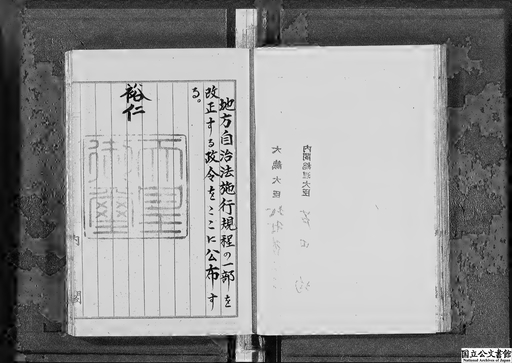 地方自治法施行規程の一部を
改正する政令をここに公布す
る。
裕仁
天皇
御璽
内閣
内閣総理大臣
大蔵大臣
国立公文書館
National Archives of Japan